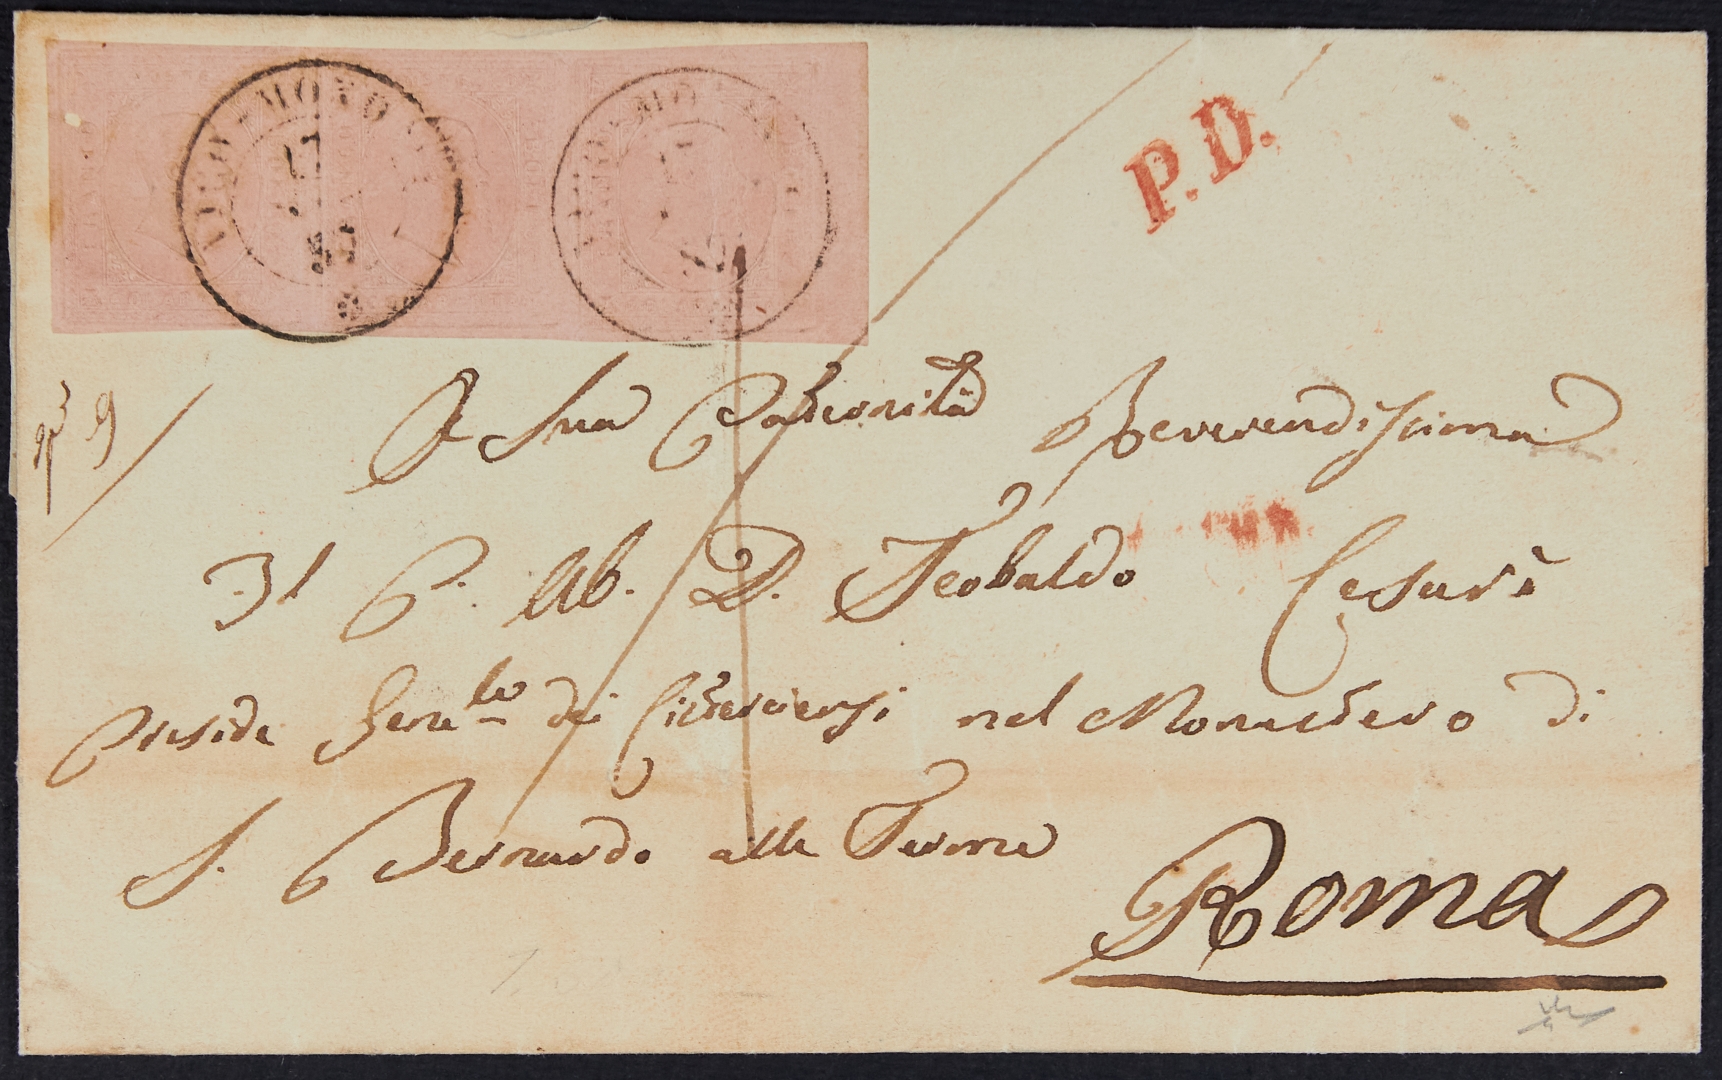 P.D.
A Sua Paternità Reverendissima
Il P. Ab. D. Teobaldo Cesari
Preside Gen.le dei Cisterciensi nel Monastero di
S. Bernardo alle Terme
Roma